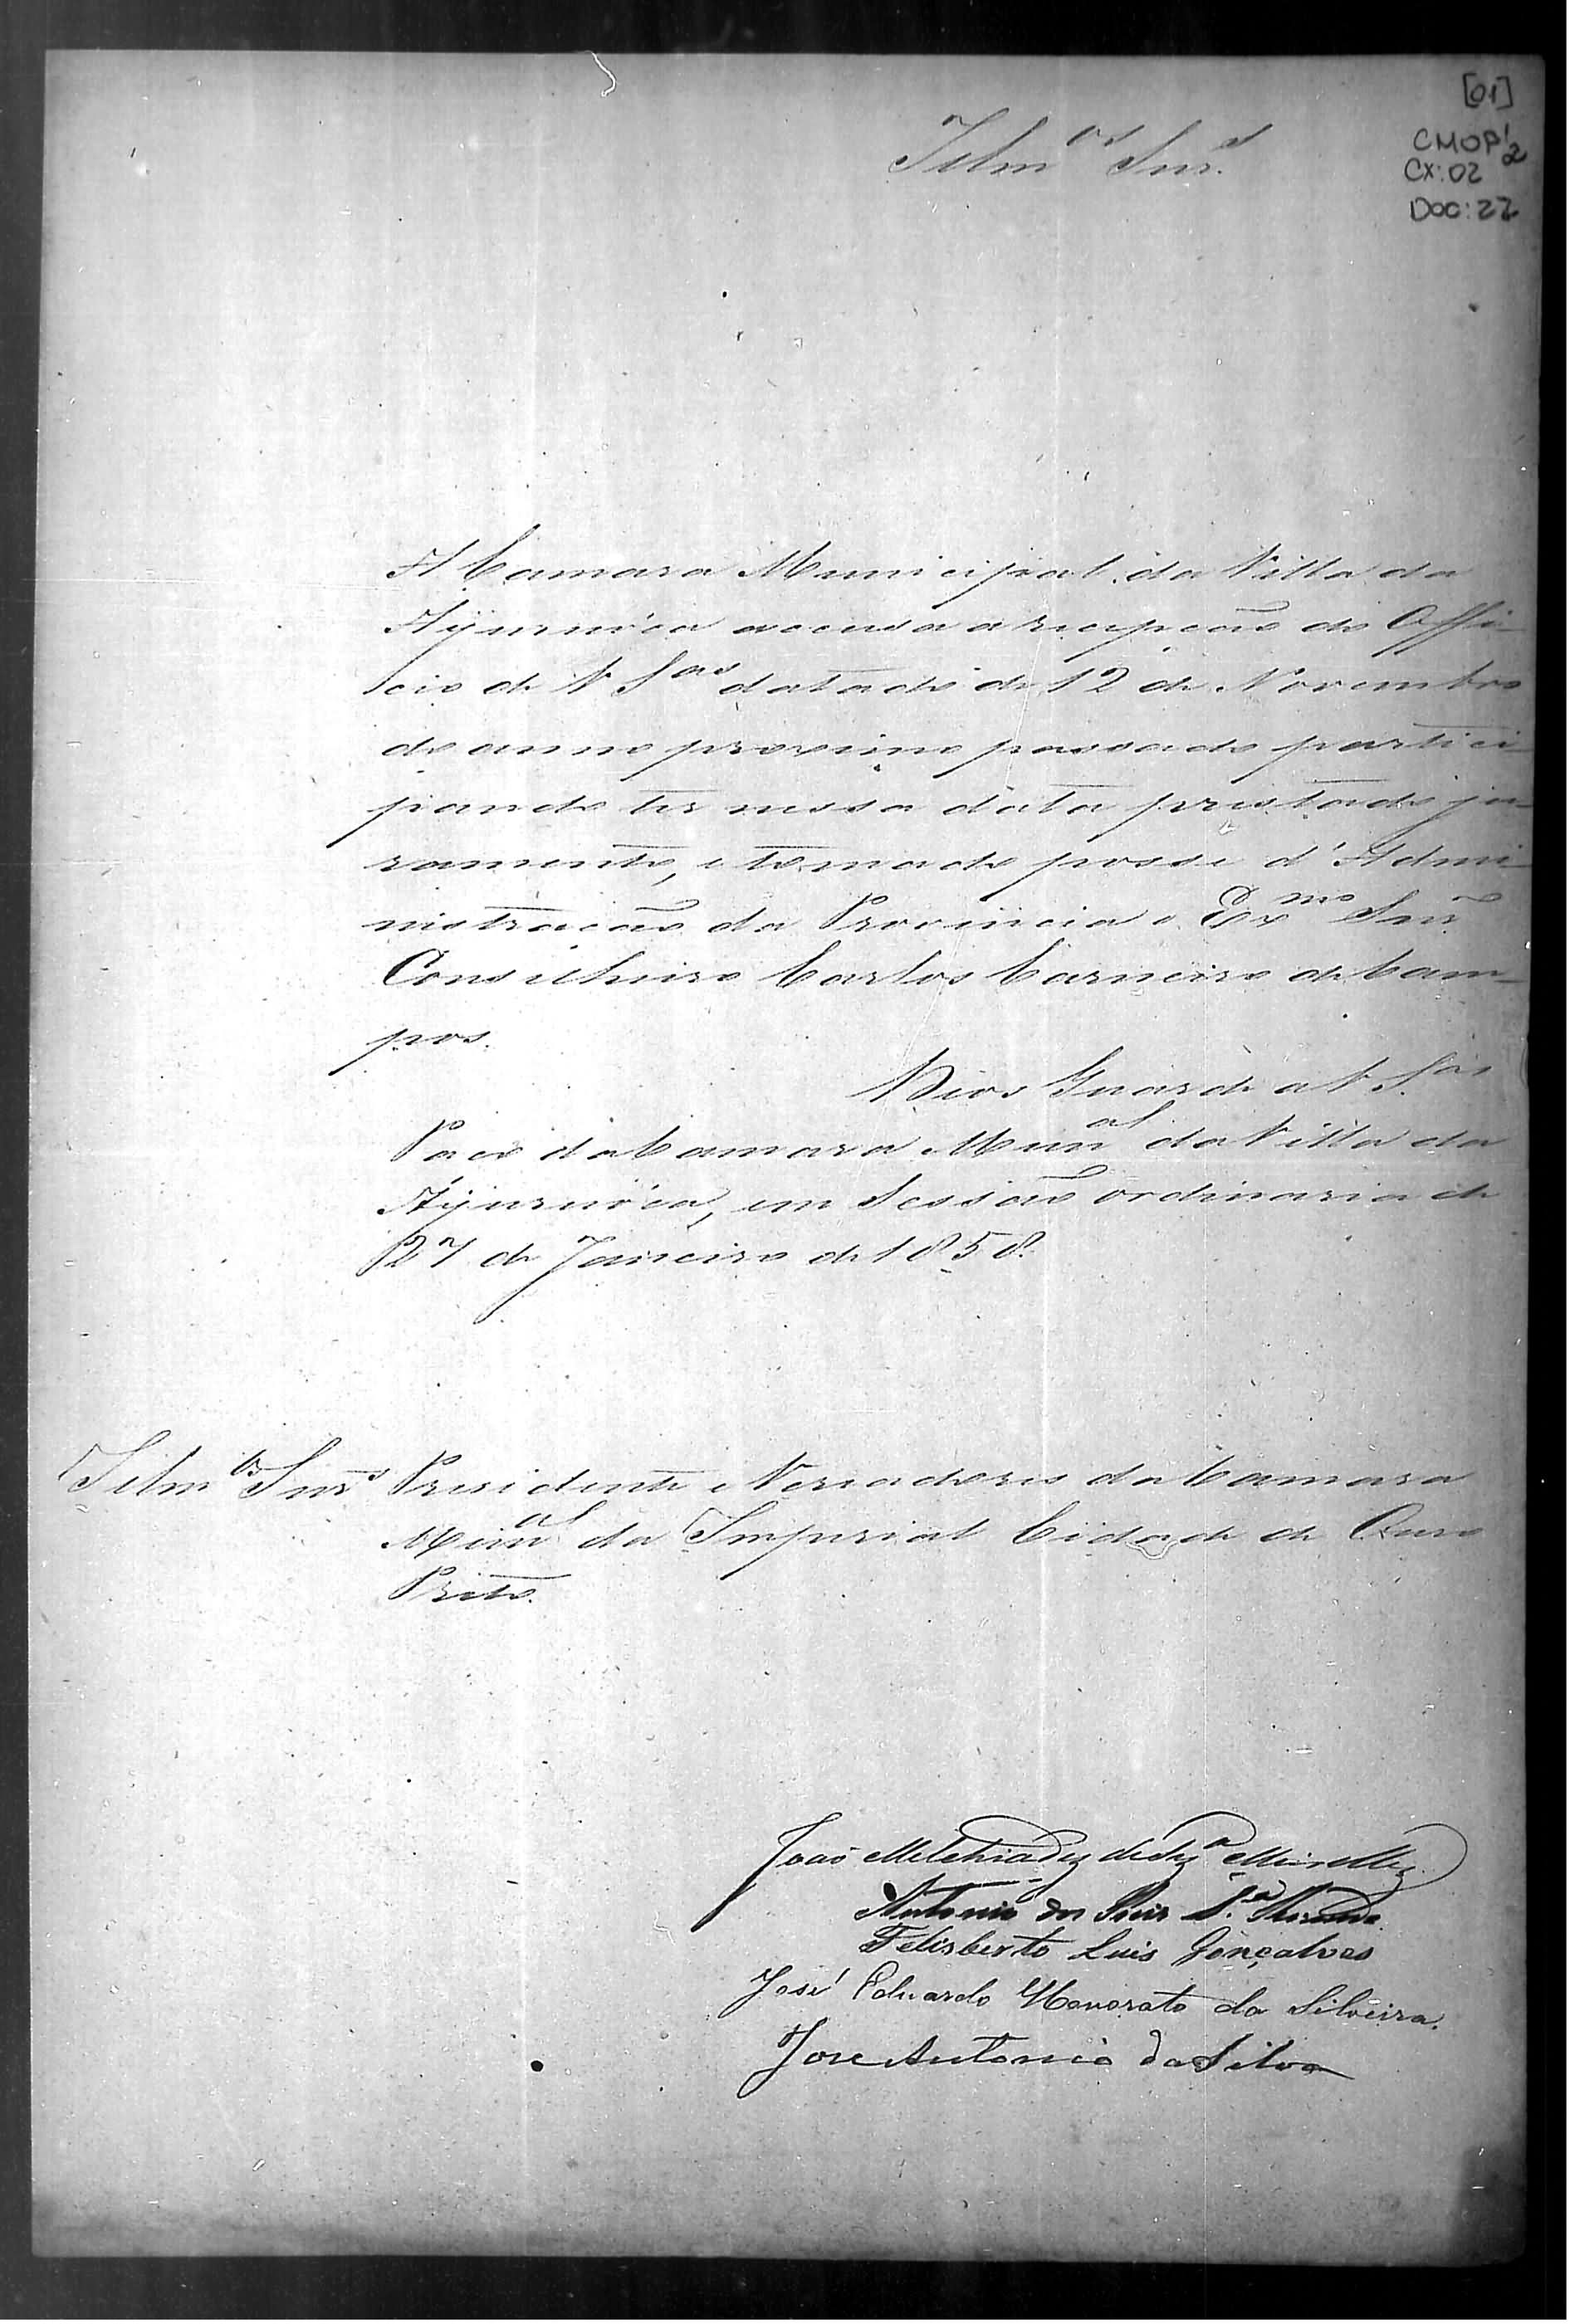 [01]
CMOP 1/2
CX: 02
DOC: 22
Illm.os Snr.s
A Camara Municipal da Villa da
Ayuruóca accusa a recepção do Offi-
cio de V S.as datado de 12 de Novembro
do anno proximo passado partici-
pando ter nessa data prestado ju-
ramento, e tomado posse d'Admi-
nistração da Provincia o Ex.mo Snr.
Conselheiro Carlos Carneiro de Cam-
pos.
Deos Guarde a V S.as
Paço da Camara Mun.al da Villa da
Ayuruóca, em Sessão ordinaria de
27 de Janeiro de 1858.
Illm.os Snr.s Presidente e Veriadores da Camara
Mun.al da Imperial Cidade de Ouro
Preto.
João Melchiades de Sz.a Meirelles
Antonio dos Reis S.a
Felisberto Luis Gonçalves
José Eduardo Honorato da Silveira.
Jose Antonio da Silva